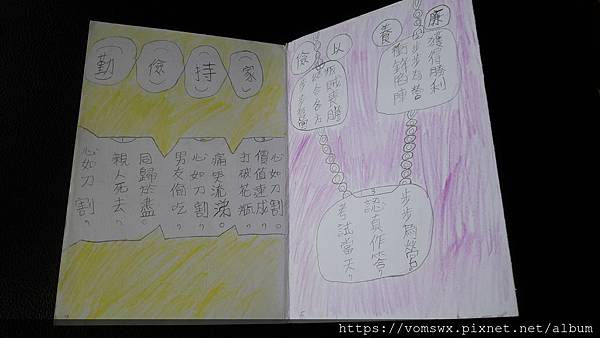 勤儉持家
心如刀割。
親人死去，
同歸於盡。
男友偷吃，
心如刀割，
痛哭流涕。
打破花瓶，
價值連城，
心如刀割。
儉以養廉
步步為營
各方
叛賊喪膽
衝鋒陷陣
步步為營
獲得勝利
考試當天，
認真作答，
步步為營。
https://vomswx.pixnet.net/album